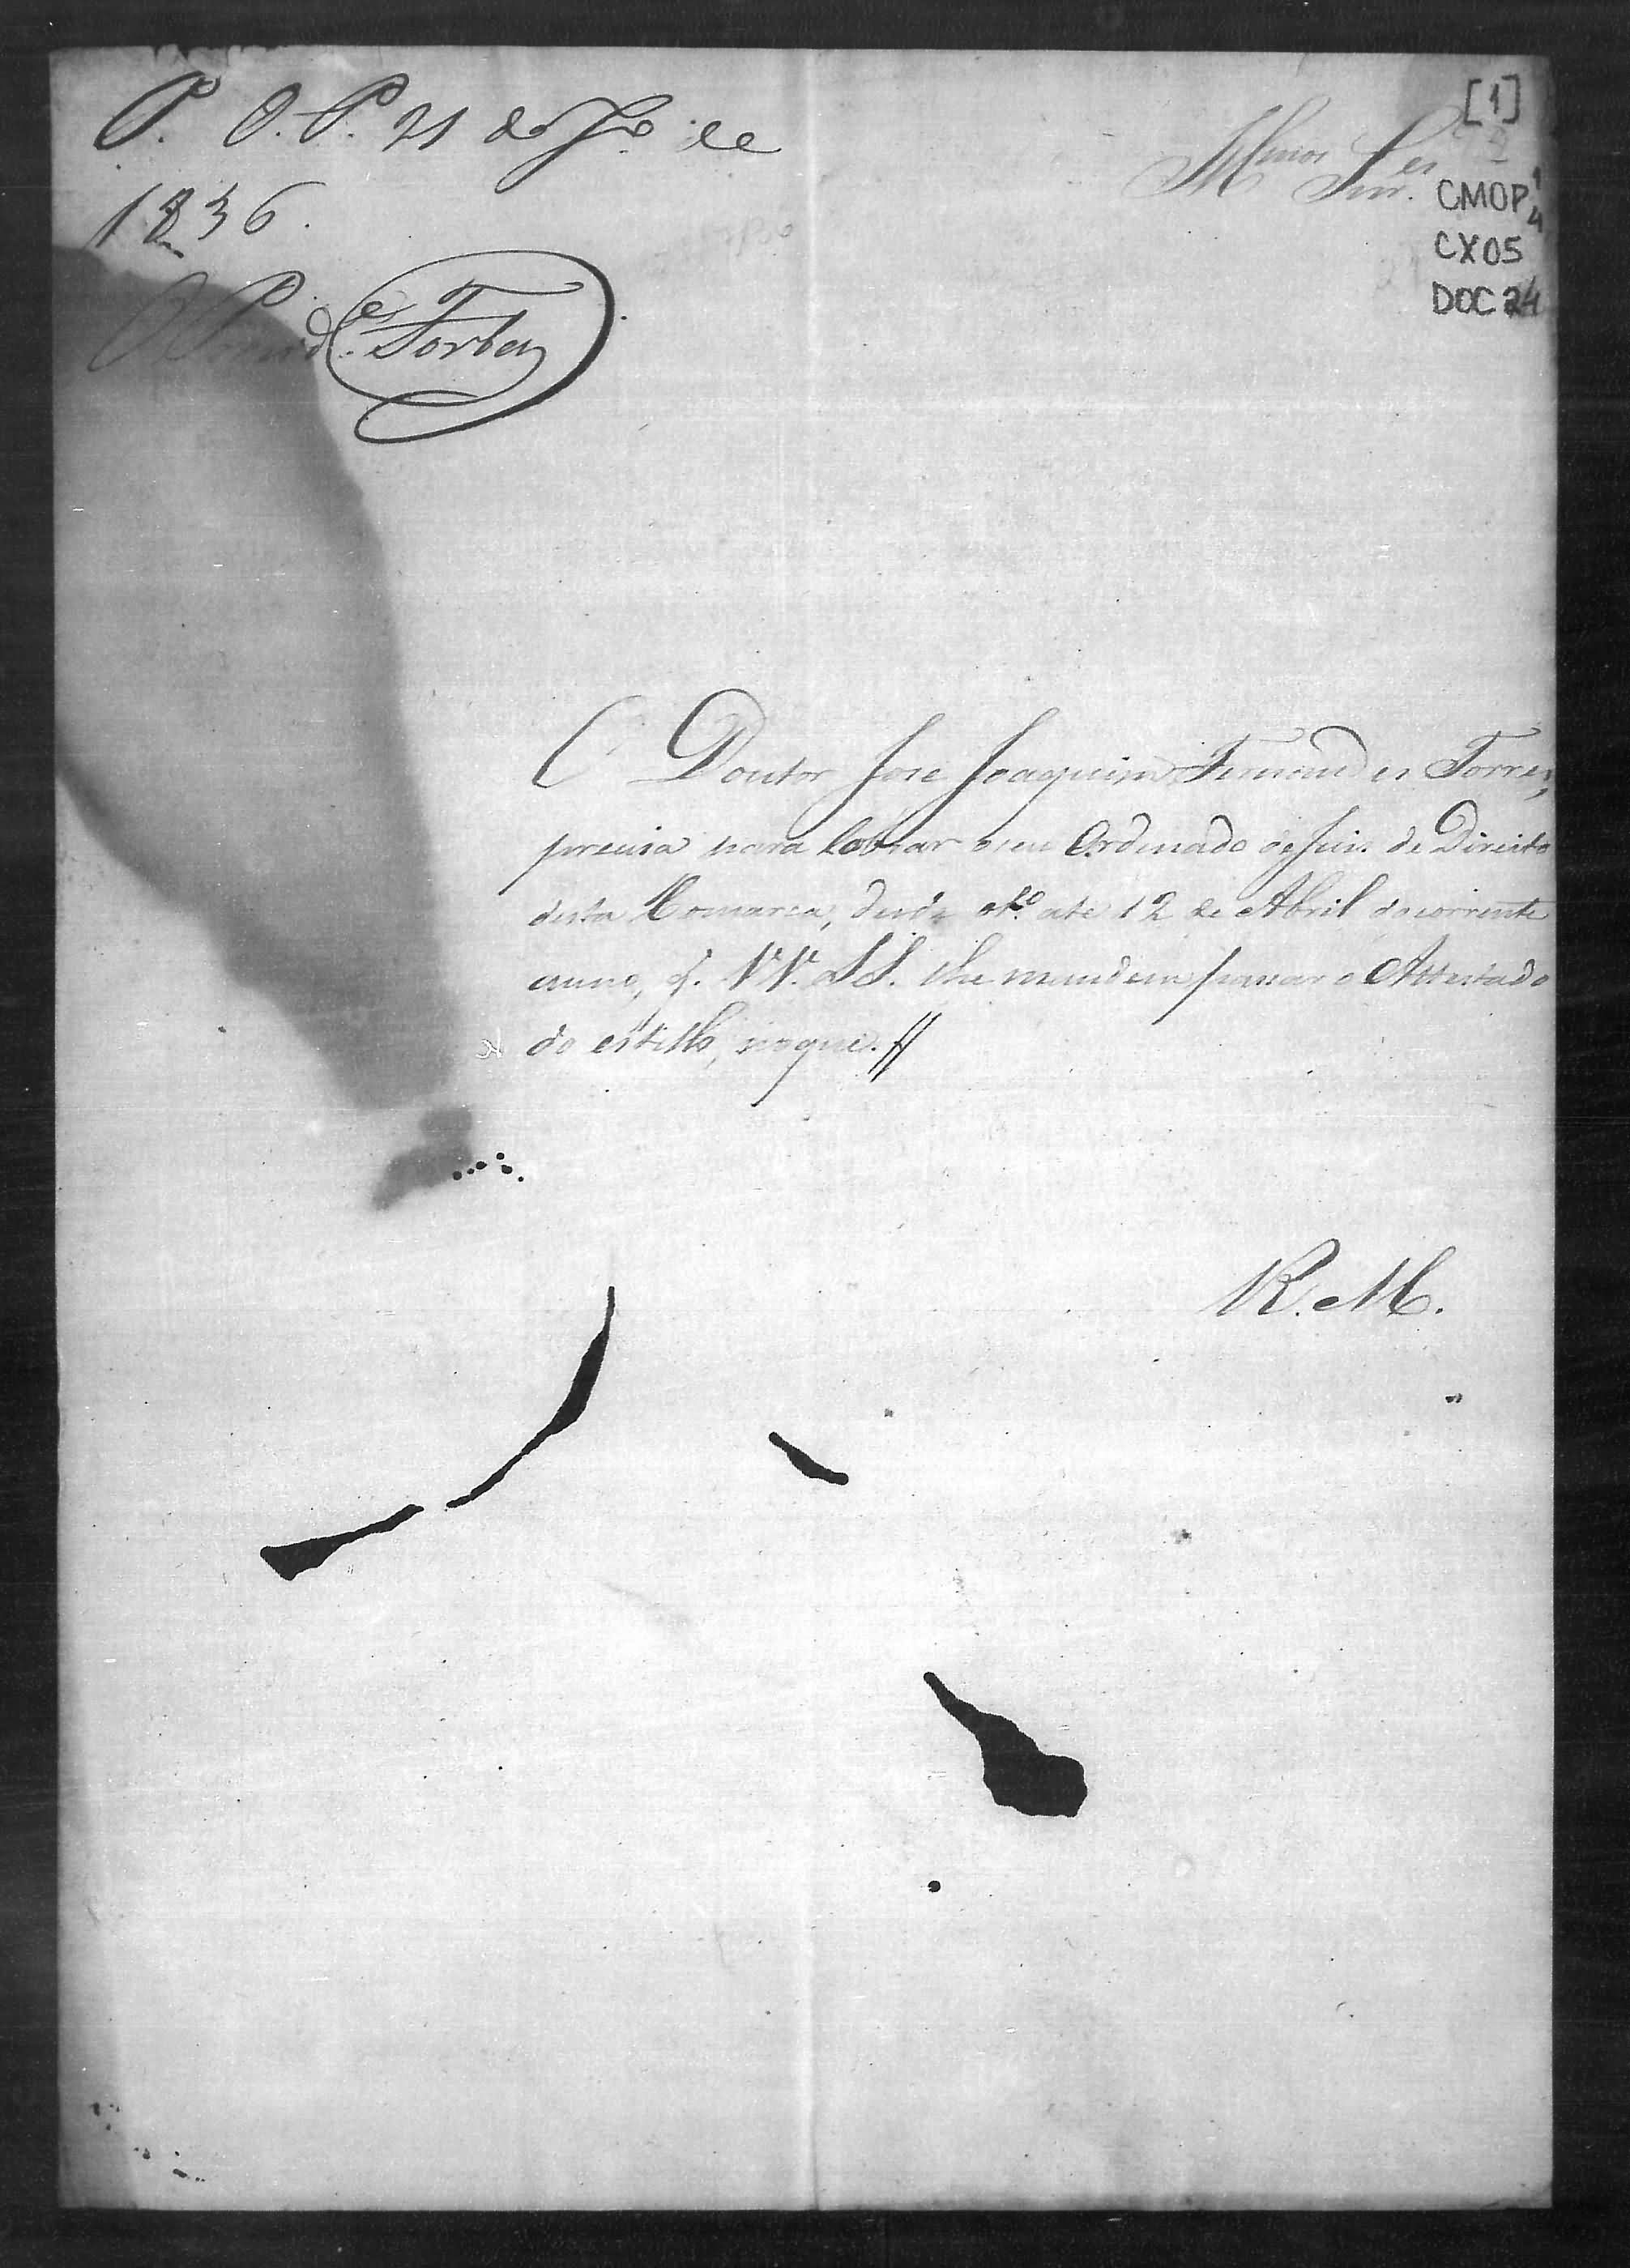 P. O. P. 21 de Jº de
1836.
O Presid.e Torres
[1]
Illmos Snr.es
CMOP
CX05
DOC 24
O Doutor Jose Joaquim Fernandes Torres,
precisa para Cobrar o seu Ordenado de Juis de Direito
desta Comarca, desde até 12 de Abril do corrente
anno, q. VV. SS. lhe mandem passar o Attestado
do estillo, no que. //
R. M.